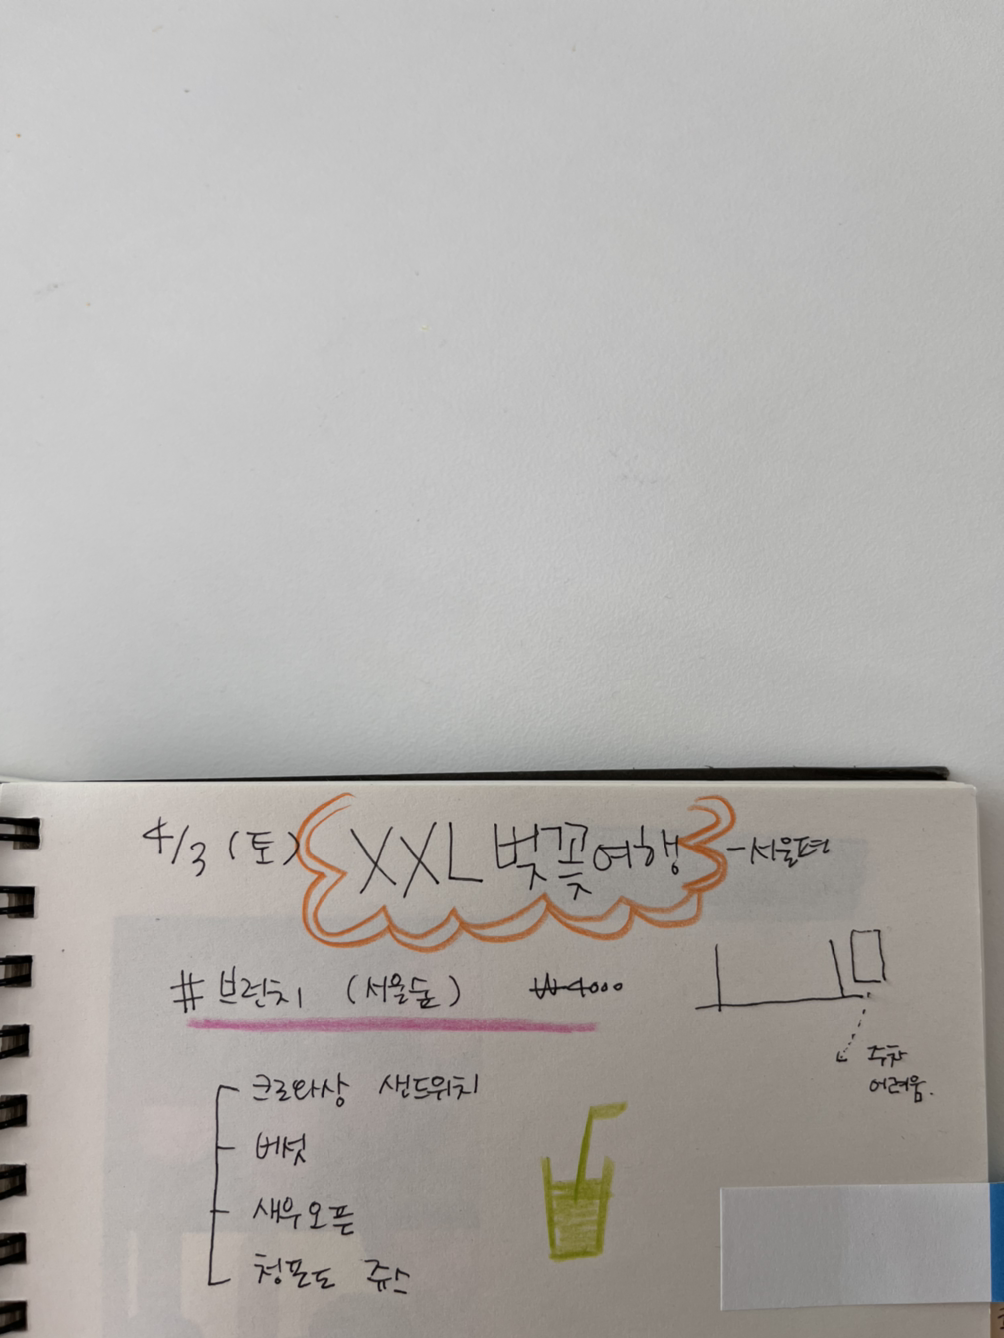 4/3 (토) XXL 벚꽃여행 -서울편
# 브런치 (서울숲) ₩4000
크로와상 샌드위치
버섯
새우오픈
청포도 쥬스
주차
어려움.